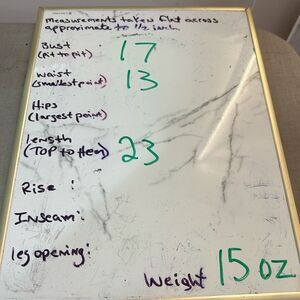 measurements taken flat across
approximate to 1/2 inch
Bust
(Pit to pit) 17
waist
(smallest point) 13
Hips
(largest point)
length
(TOP to Hem) 23
Rise :
Inseam:
leg opening:
weight 15 oz